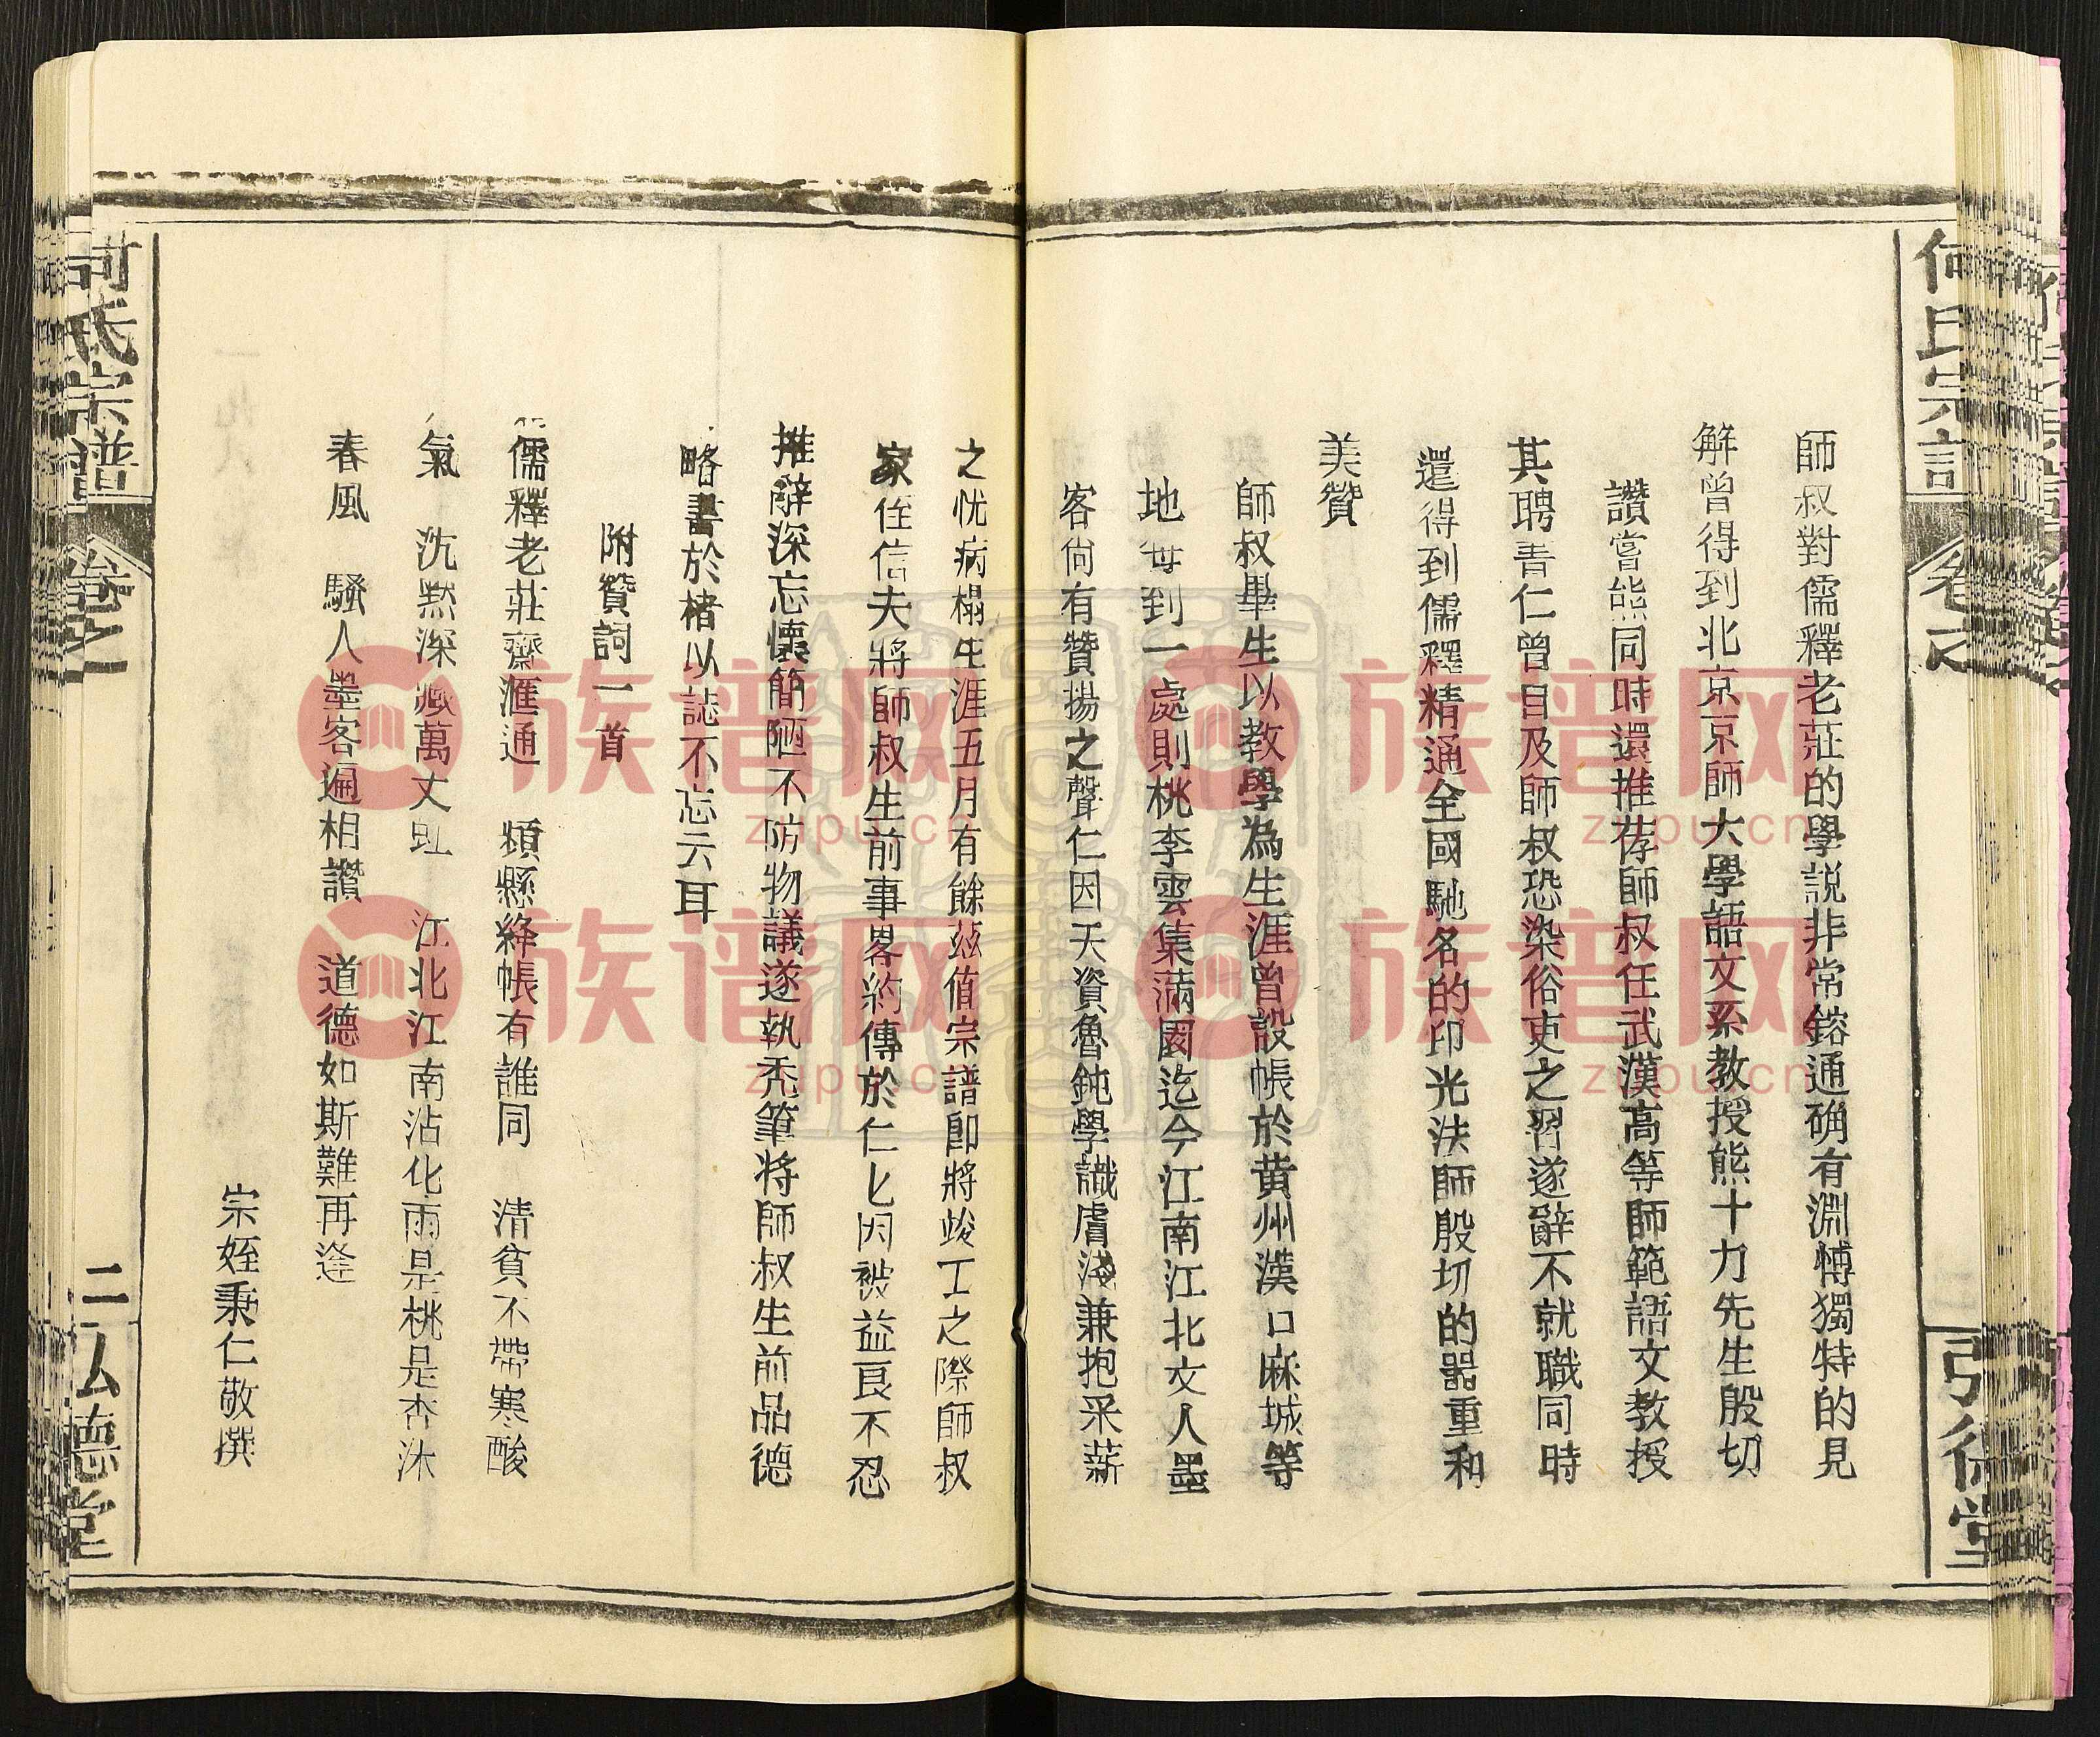 何氏宗譜
卷之
弘德堂
師叔對儒釋老莊的學説非常鎔通确有淵博獨特的見
解曾得到北京京師大學語文系教授熊十力先生殷切
讚嘗熊同時還推荐師叔任武漢高等師範語文教授
其聘青仁曾目及師叔恐染俗吏之習遂辭不就職同時
還得到儒釋精通全國馳名的印光法師殷切的器重和
美贊
師叔畢生以教學為生涯曾設帳於黄州漢口麻城等
地每到一處則桃李雲集滿園迄今江南江北文人墨
客尚有贊揚之聲仁因天資魯鈍學識膚淺兼抱采薪
之忧病榻生涯五月有餘兹值宗譜即將竣工之際師叔
家侄信夫將師叔生前事畧約傳於仁匕因被益良不忍
推辭深忘懷簡陋不防物議遂執禿筆将師叔生前品德
略書於楮以誌不忘云耳
附贊詞一首
儒釋老莊齋滙通 頻懸絳帳有誰同 清貧不帶寒酸
氣 沉黙深藏萬丈虹 江北江南沾化雨是桃是杏沐
春風 騷人墨客遍相讚 道德如斯難再逢
宗姪秉仁敬撰
何氏宗譜
卷之一
二
弘德堂
族谱网
zupu.cn
族谱网
zupu.cn
族谱网
zupu.cn
族谱网
zupu.cn